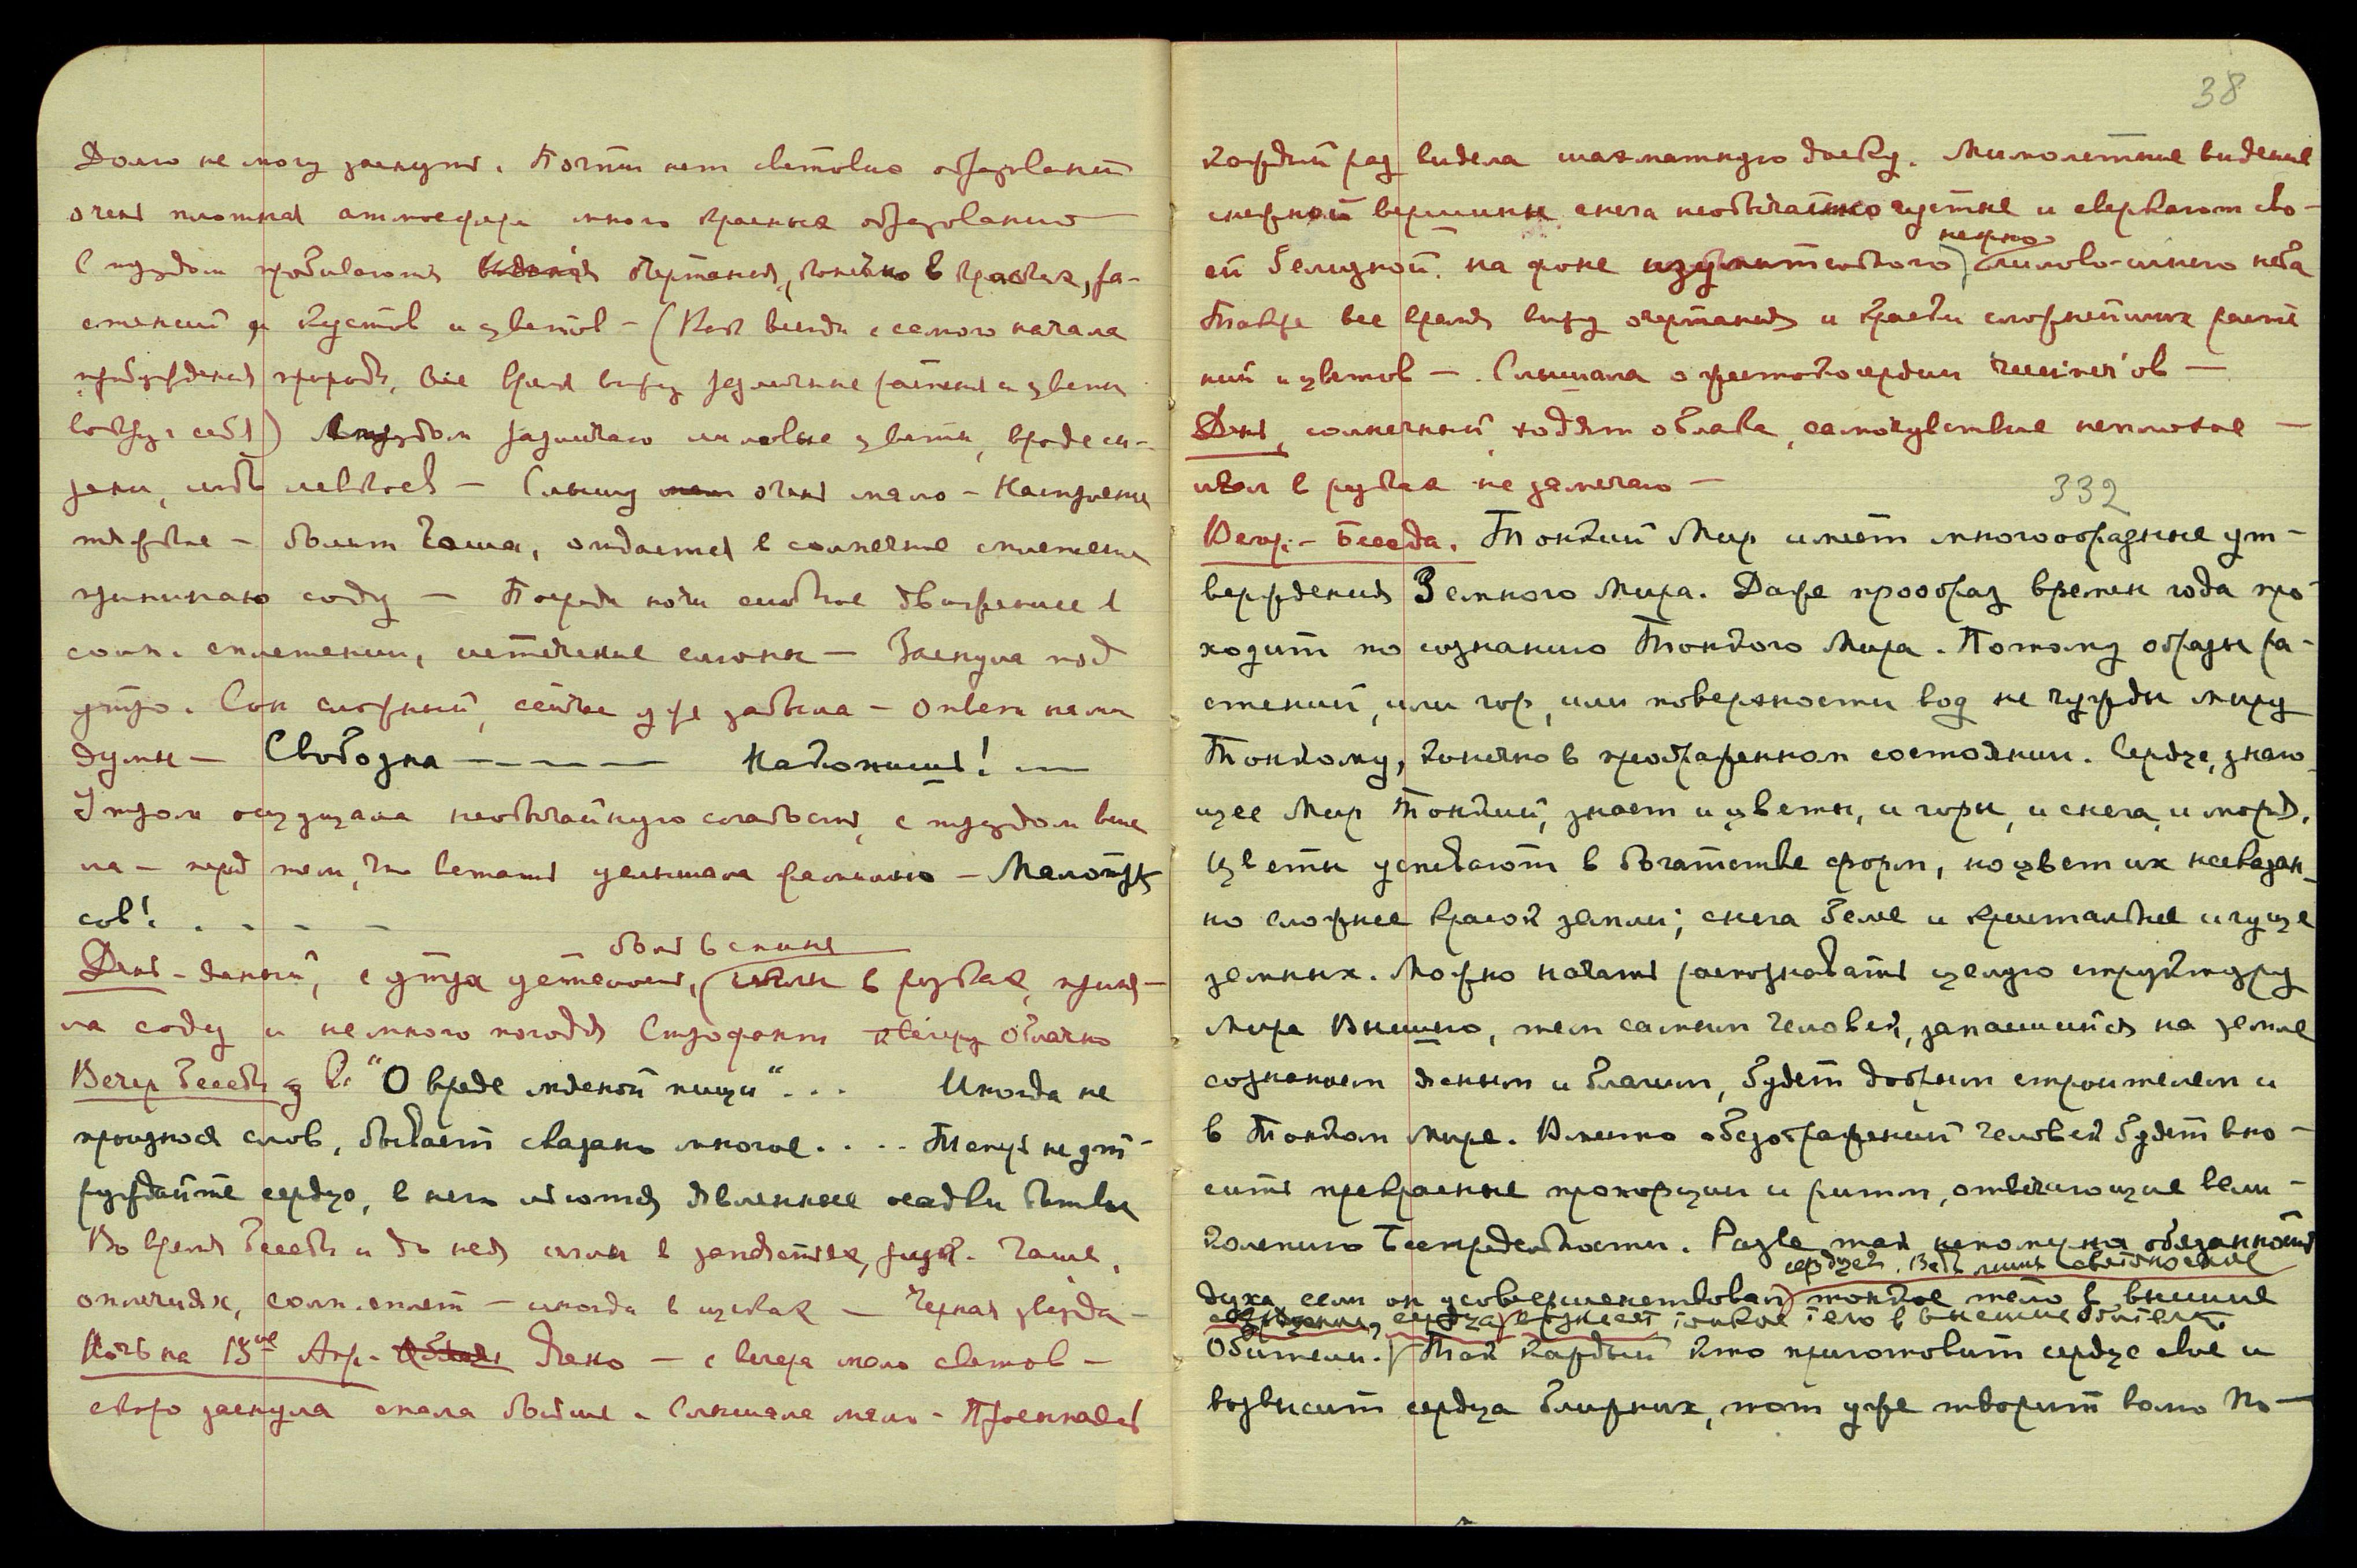 Долго не могу заснуть. Почти нет световых образований
очень плотная атмосфера много красных образований
С трудом пробиваются очертания, в красках, ра-
стений и кустов и цветов – (Как всегда с самого начала
пробуждения природы, все время вижу различные растения и цветы
вокруг себя) С трудом различаю лиловые цветы, вроде си-
рени, либо левкоев – Слышу очень мало – Напряжение
тяжкое – болит Чаша, отдается в солнечное сплетение
принимаю соду – Посреди ночи сильное движение в
солн. сплетении, истечение слюны – Заснула под
утро. Сон сложный, сейчас уже забыла – Ответы на мои
думы – Свободна – – – – Накопишь! –
Утром ощущала необычайную слабость, с трудом вста
ла – перед тем, что встать услышала фамилию –
сов! . - - -
боль в спине
День – ясный, с утра усталость, иглы в руках, приня-
ла соду и немного погодя Строфант к вечеру облачно
Вечер Беседы з В. "О вреде мясной пищи" . . . Иногда не
произнося слов, бывает сказано много. . . . Теперь не ут-
руждайте сердце, в нем имеются явленные осадки битвы
Во время Беседы и до нея иглы в запястьях, Чаше,
оплечьях, солн. сплет – иногда в щеках – Черная звезда –
Ночь на 13-ое Апр. Ясно – с вечера мало светов –
скоро заснула спала больше. Слышала мало – Просыпаясь
38
каждый раз видела шахматную доску. Мимолетное видение
снежной вершины снега необычайно густые и сверкают сво-
нежно
ей белизной на фоне изумительного лилово-синего неба
Также все время вижу очертания и краски сложнейших расте
ний и цветов – . Слышала о жестокосердии
День, солнечный, ходят облака, самочувствие неплохое –
игл в руках не замечаю –
332
Вечер – Беседа. Тонкий Мир имеет многообразные ут-
верждения Земного Мира. Даже прообраз времен года про
ходит по сознанию Тонкого Мира. Потому образы ра-
стений, или гор, или поверхности вод не чужды миру
Тонкому, конечно в преображенном состоянии. Сердце, знаю-
щее Мир Тонкий, знает и цветы, и горы, и снега, и моря.
Цветы успевают в богатстве форм, но цвет их несказан-
но сложнее красок земли; снега белее и кристальнее и гуще
земных. Можно начать распознавать целую структуру
Мира Высшего, тем самым человек, запасшийся на земле
сознанием ясным и благим, будет добрым строителем и
в Тонком Мире. Вместо обезображений человек будет вно-
сить прекрасные пропорции и ритм, отвечающие вели-
колепию Беспредельности. Разве так непомерна обязанность
сердцем. Ведь лишь светоносные
духа если он усовершенствовал тонкое тело в высшие
сердца вознесет тонкое тело в высшие обители.
Обители. Так каждый кто приготовит сердце свое и
возвысит сердца ближних, тот уже творит волю По-